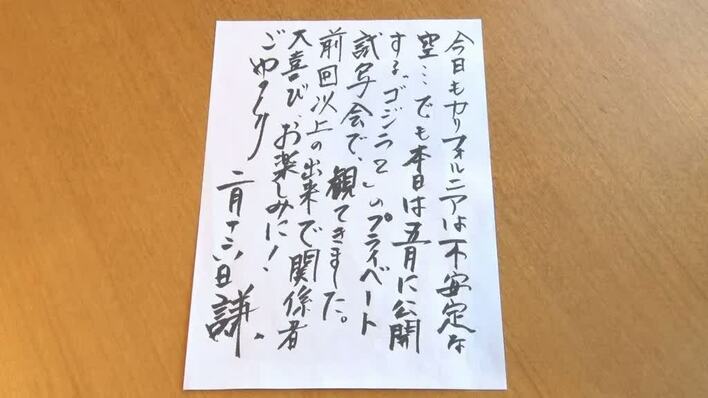 今日もカリフォルニアは不安定な
空…でも本日は五月に公開
する“ゴジラ2”のプライベート
試写会で、観てきました。
前回以上の出来で関係者
大喜び、お楽しみに!
ごゆるり
二月十六日 謙.